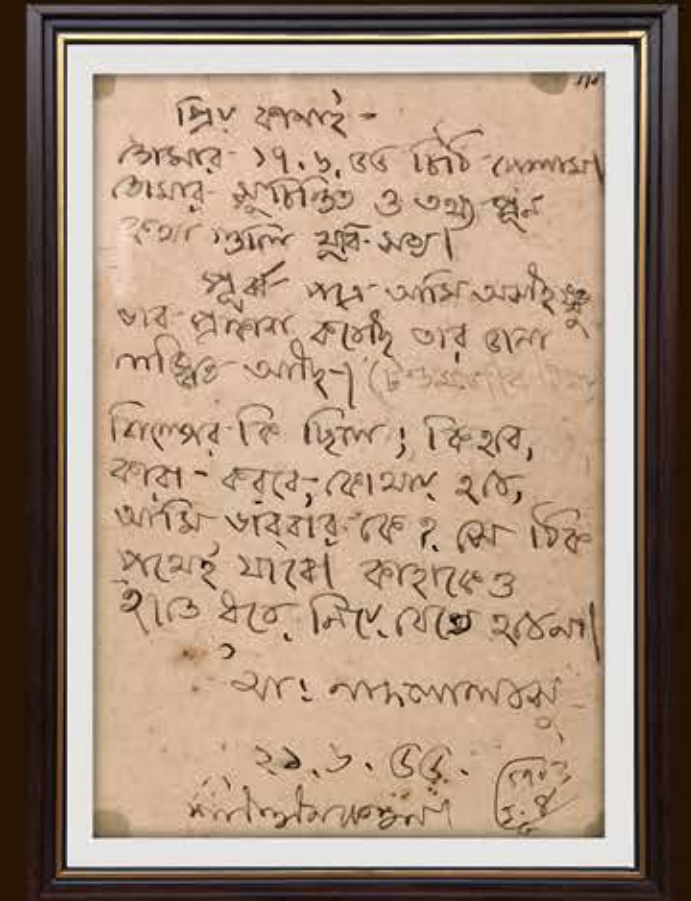 প্রিয় কানাই -
তোমার - ১৭.৬.৫৫ চিঠি - পেলাম।
তোমার - সুচিন্তিত ও তথ্য পূর্ন
কথা গুলি খুবি - সত্য।
পূর্ব্ব - পত্রে - আমি
ভাব - প্রকাশ করেছি তার জন্য
লজ্জিত আছি - । (
শিল্পের কি ছিল ; কি হবে,
কারা - করবে, কোথায় হবে,
আমি ভাববার - কে ? সে ঠিক
পথেই যাবে। কাহাকেও
হাত ধরে, নিয়ে, যেতে হবেনা।
নন্দলাল বসু
২১.৬.৫৫.
শান্তিনিকেতন।